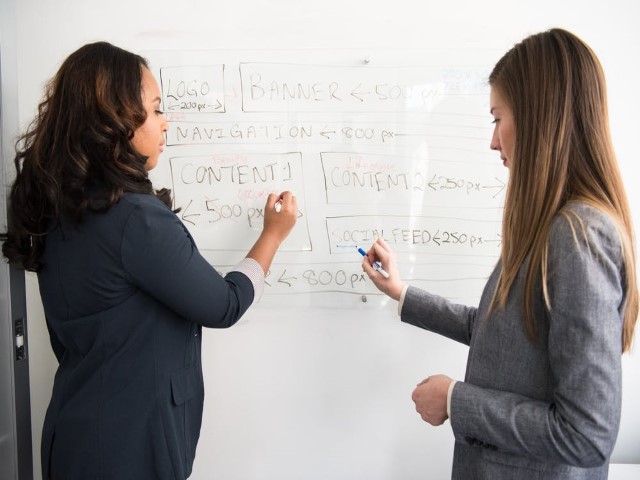 LOGO
←200px→
BANNER ← 500
NAVIGATION ← 800 px
CONTENT 1
← 500
CONTENT 2 ←250px→
SOCIALFEED ←250px→
R ← 800px